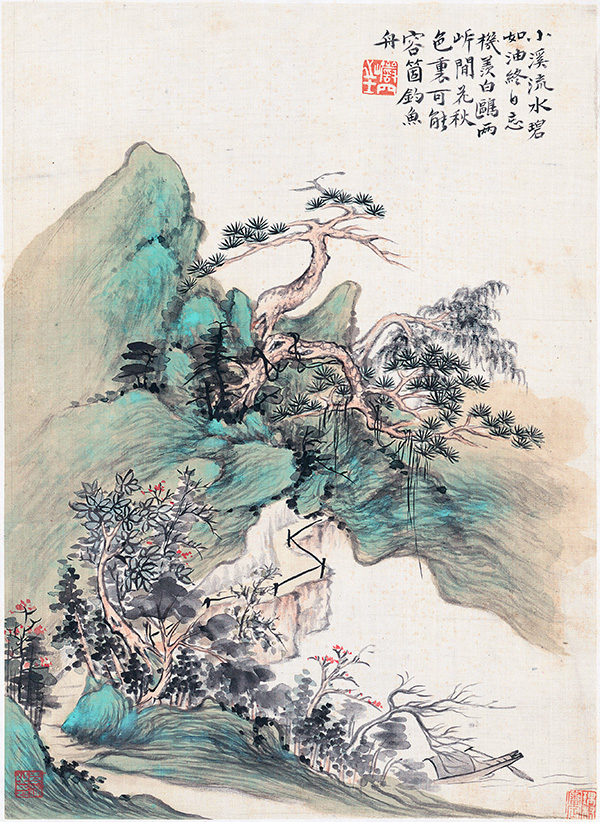 小溪流水碧
如油終日忘
機羨白鷗兩
岸間花秋
色裏可能
容箇釣魚
舟